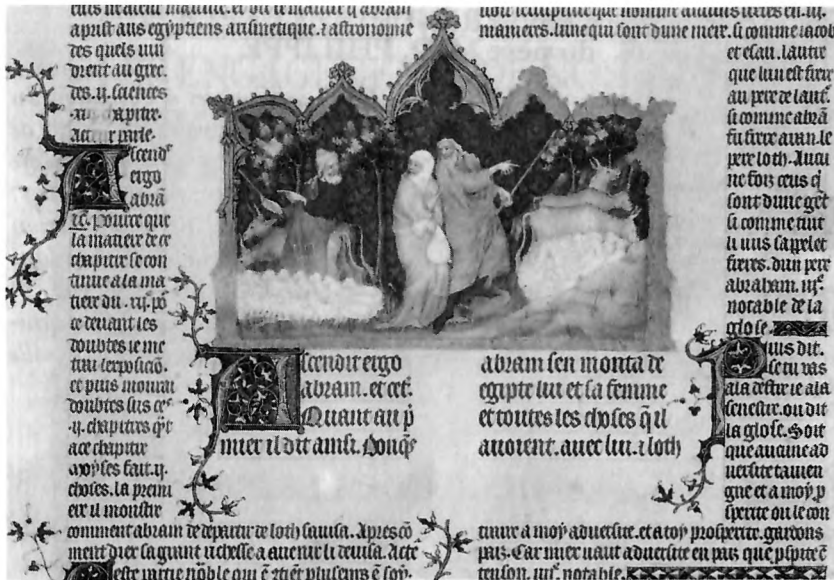 aprist aus egyptiens arismetique. ⁊ astronomie
des quels vin
drent au grec.
des .ij. sciences
chapitre.
Scendit
ergo
abrā
⁊c. pource que
la matiere de ce
chapitre se con
tinue a la ma
tiere du .xij. po
ce deuant les
doubtes ie me
trai lexposiciō.
et puis mourai
doubtes sus ces
.ij. chapitres q̄t
a ce chapitre
moyses fait .ij.
choses. la premi
ere il monstre
comment abram de departir de loth sauisa. Apres cō
ment dieu sa grant richesse a auenir li deuisa.
Ascendit ergo
abram. et cet̄.
Quant au p̄
mier il dit ainsi. Donq̄s
abram sen monta de
egipte lui et sa femme
et toutes les choses q̄ il
auoient. auec lui. ⁊ loth
manieres. lune qui sont dune mere. si comme iacob
et esau. lautre
que lun est frere
au pere de laut̄.
si comme abrā
fu frere aran. le
pere loth. Aucu
ne foiz ceus q̄
sont dune gēt
si comme tuit
li uiis sappelet
freres. dun pere
abraham. iije.
notable de la
glose.
Puis dit.
se tu vas
a la destre ie a la
senestre. ou dit
la glose. Soit
que aucune ad
uersite tauien
gne et a moy p̄
sperite ou le con
traire a moy aduersite. et a toy prosperite. gardons
pais. Car miex uaut aduersite en pais que p̄sperite ē
tenson. iiije. notable.